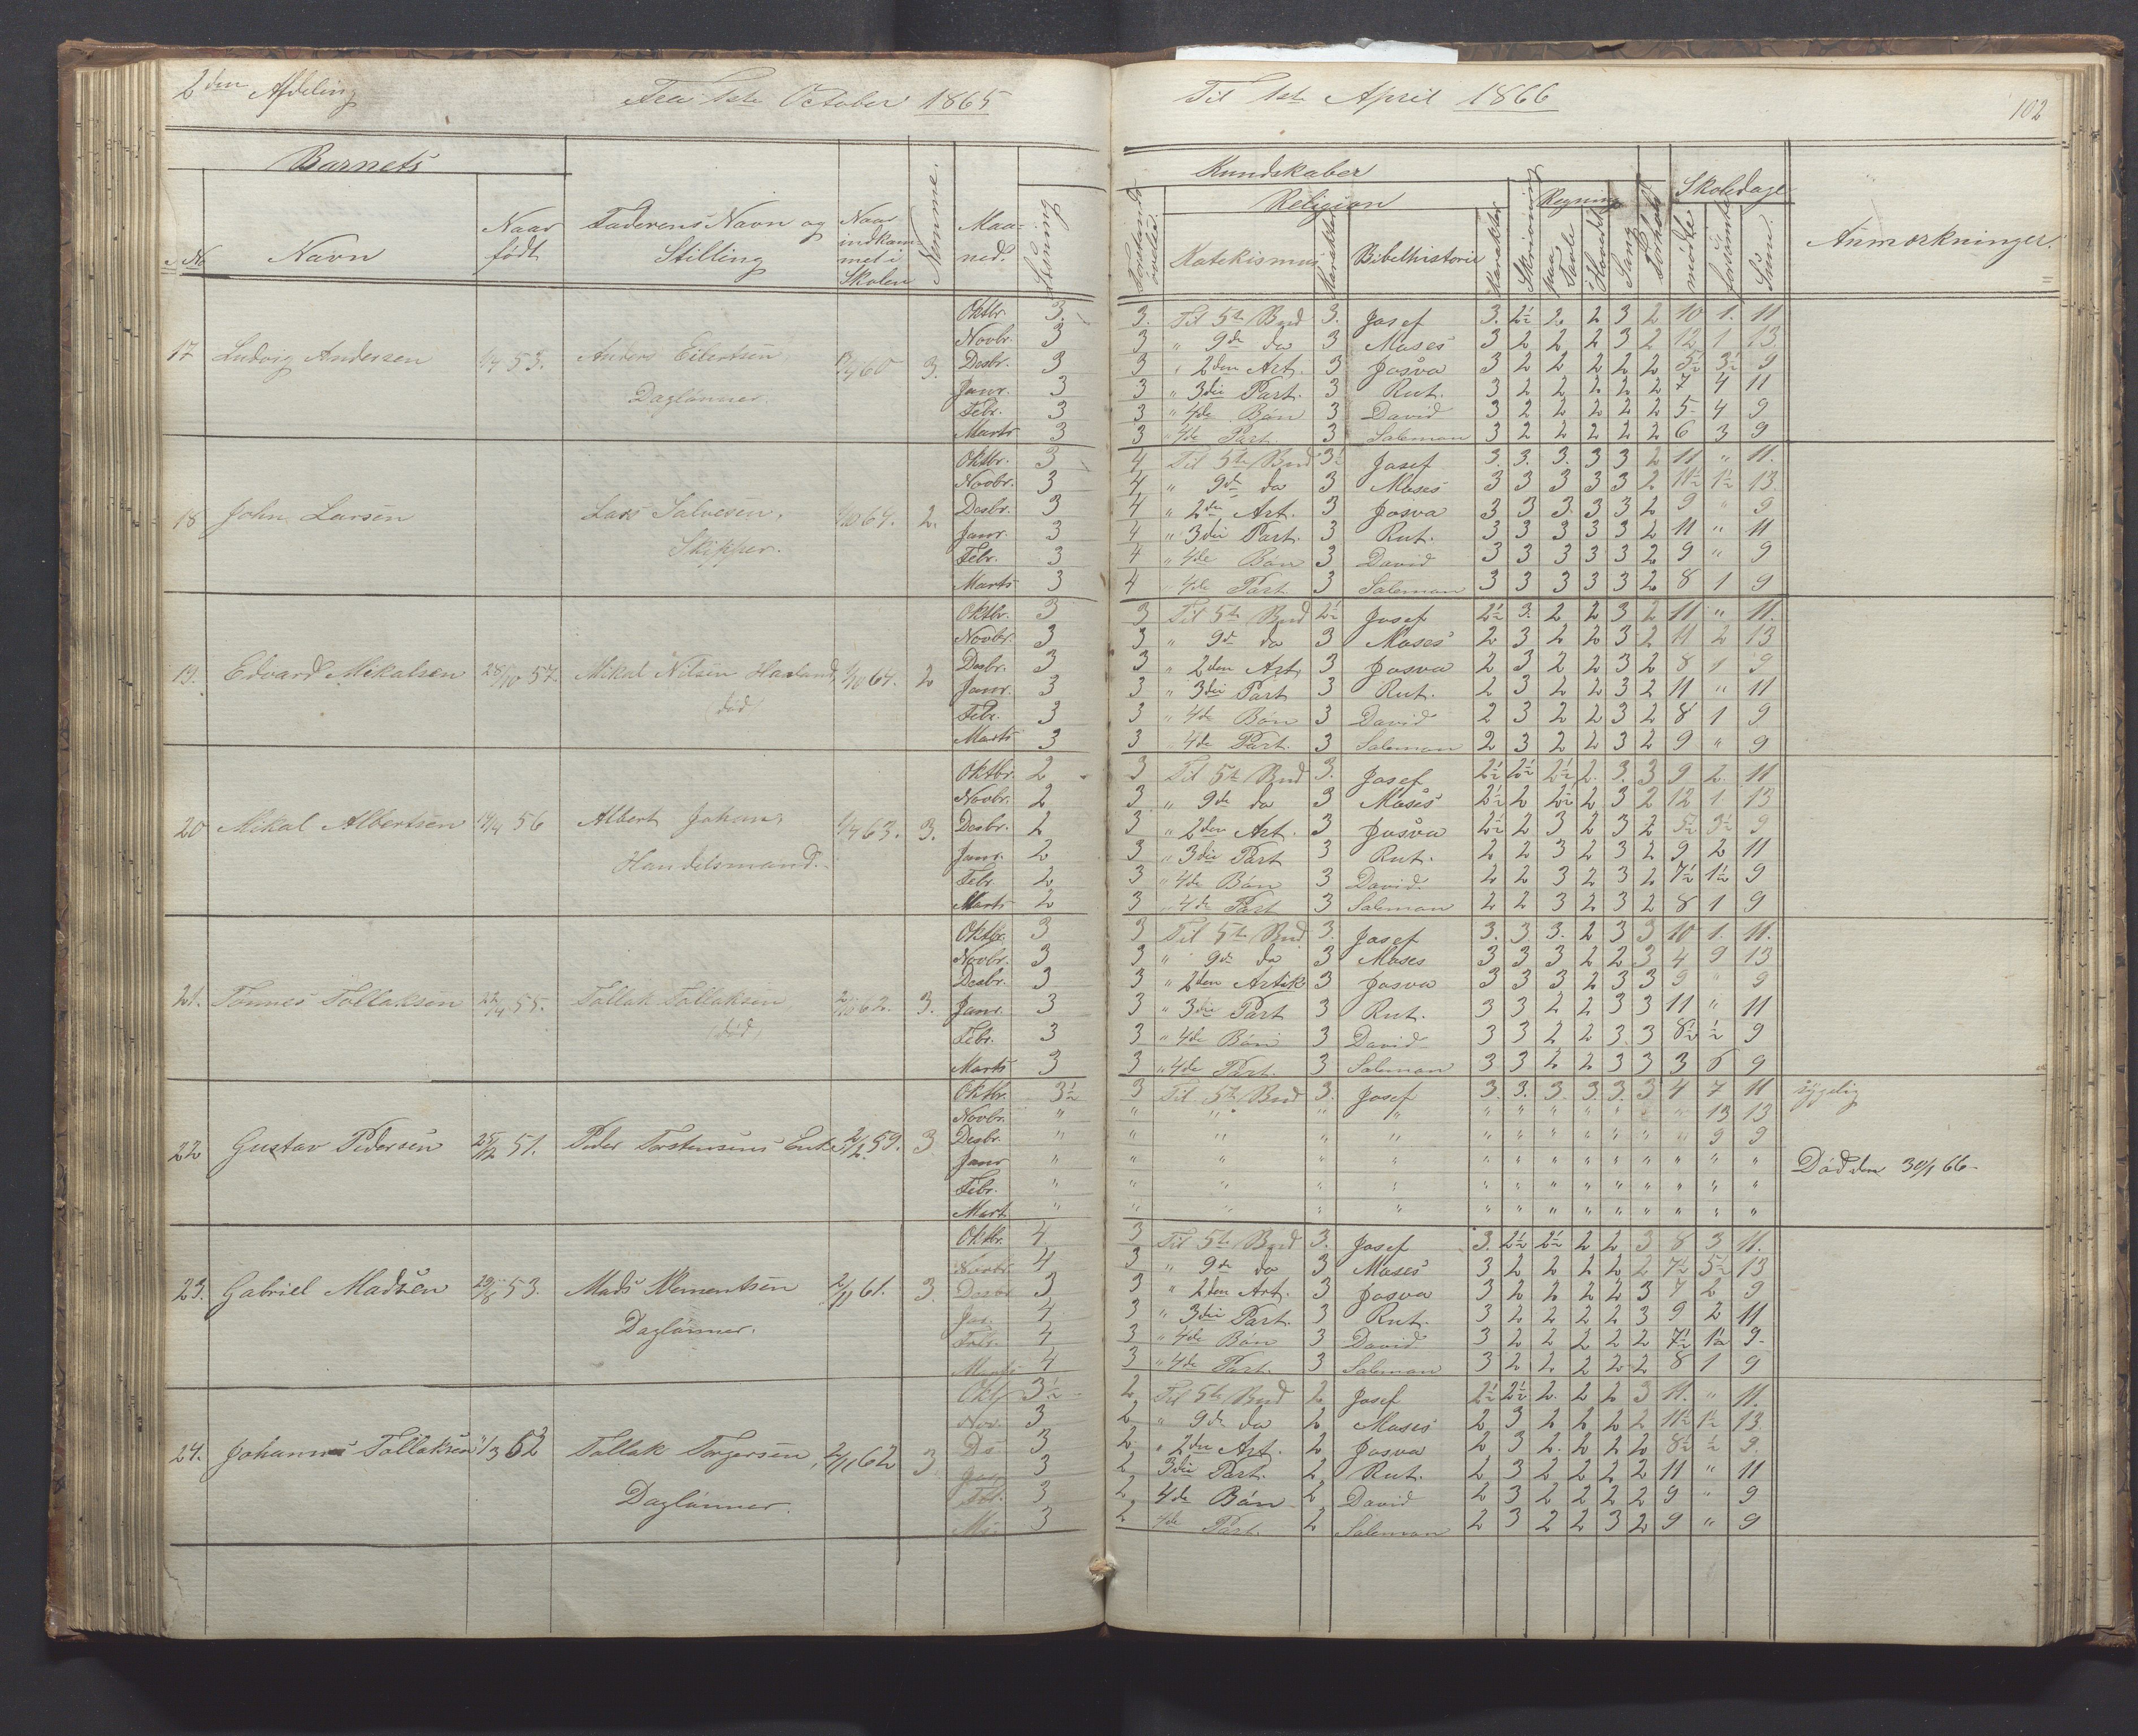 2den Afdeling
Fra 1ste October 1865
Til 1ste April 1866
102
Barnets
No
Navn
Naar født
Faderens Navn og Stilling
Naar indkommet i Skolen
Nemme.
Maaned.
Kundskaber
Religion
Katekismus
Karakter
Bibelhistorie
Karakter
Skrivning
Regning
paa Tavle
i Hovedet
Sang
Forhold
Skoledage
mødte
forsømte
Sum.
Anmærkninger.
17 Ludvig Andersen 1/7 53. Anders Eilertsen 60 3.
Daglønner.
Oktbr. 3. 3. Til 5te Bud 3. Josef 3. 2½ 2 2 3 2 10 1. 11
Novbr. 3 3 " 9de do 3 Moses 3 2 2 2 3 2 12 1 13
Desbr. 3 3 " 2den Art. 3 Josva 3 2 2 2 2 2 5½ 3½ 9
Janr. 3 3 " 3die Part. 3 Rut. 3 2 2 2 2 2 7 4 11
Febr. 3 3 " 4de Bøn 3 David 3 2 2 2 2 2 5 4 9
Marts 3 3 " 4de Part. 3 Salemon 3 2 2 2 2 2 6 3 9
18 John Larsen Lars Salvesen. 1/10 64. 2.
Skipper.
Oktbr. 3 4 Til 5te Bud 3½ Josef 3. 3. 3. 3 3 2 11 " 11.
Novbr. 3 4 " 9de do 3 Moses 3 3 3 3 3 2 11½ 1½ 13
Desbr. 3 4 " 2den Art. 3 Josva 3 3 3 3 3 2 9 " 9
Janr. 3 4 " 3die Part. 3 Rut. 3 3 3 3 3 2 11 " 11
Febr. 3 4 " 4de Bøn 3 David 3 3 3 3 3 2 9 " 9
Marts 3 4 " 4de Part. 3 Salemon 3 3 3 3 3 2 8 1 9
19. Edvard Mikalsen 28/10 57. Mikal Nilsen Havland 1/10 64. 2
død
Oktbr. 3 3 Til 5te Bud 2½ Josef 2½ 3. 2 2 3 2 11 " 11.
Novbr. 3 3 " 9de do 3 Moses 2 3 2 2 3 2 11 2 13
Desbr. 3 3 " 2den Art. 3 Josva 2 3 2 2 3 2 8 1 9
Janr. 3 3 " 3die Part 3 Rut. 2 3 2 2 3 2 11 " 11
Febr. 3 3 " 4de Bøn 3 David 2 3 2 2 3 2 8 1 9
Marts 3 3 " 4de Part. 3 Salemon 2 3 2 2 3 2 9 " 9
20 Mikal Albertsen 14/4 56 Albert Johans. 1/7 63. 3.
Handelsmand.
Oktbr. 2 3 Til 5te Bud 3. Josef 2½ 2½ 2½ 2. 3. 3 9 2. 11
Novbr. 2 3 " 9de do 3 Moses 2½ 2 2½ 2 3 2 12 1. 13
Desbr. 2 3 " 2den Art. 3 Josva 2½ 2 3 2 3 2 5½ 3½ 9
Janr. 2 3 " 3die Part 3 Rut. 2 2 3 2 3 2 9 2 11
Febr. 2 3 " 4de Bøn 3 David. 2 2 3 2 3 2 7½ 1½ 9
Marts 2 3 " 4de Part 3 Salemon 2 2 3 2 3 2 8 1 9
21. Tønnes Tollaksen 22/4 55. Tollak Tollaksen 2/10 62. 3.
død
Oktbr. 3 3 Til 5te Bud 3. Josef 3. 3. 3. 2 3 3 10 1. 11.
Novbr. 3 3 " 9de do 3 Moses 3 3 3 2 2 3 4 9 13
Desbr. 3 3 " 2den Artik 3 Josva 3 3 3 2 3 3 9 " 9
Janr. 3 3 " 3die Part 3 Rut. 3 3 2 2 3 3 11 " 11
Febr. 3 3 " 4de Bøn 3 David 3 3 2 2 3 3 8½ ½ 9
Marts 3 3 " 4de Part. 3 Salemon 3 3 2 2 3 3 3 6 9
22 Gustav Pedersen 25/12 51. Peder Torstensens Enke 59. 3
Oktbr. 3½ 3 Til 5te Bud 3. Josef 3. 3. 3. 3. 3. 3 4 7 11 sygelig
Novbr. " " " " " " " " " " " " 13 13
Desbr. " " " " " " " " " " " " 9 9
Janr " " " " " " " " " " " " " " Død den 30/1 66
Febr. " " " " " " " " " " " " " "
Mart. " " " " " " " " " " " " " "
23. Gabriel Madsen 29/8 53. Mads Klementsen 2/11 61. 3.
Daglønner.
Oktbr. 4 3 Til 5te Bud 3. Josef 3. 2½ 2½ 2 2 3 8 3 11.
Novbr. 4 3 " 9de do 3 Moses 3 2 2 2 2 2 7½ 5½ 13
Desbr 3 3 " 2den Art. 3 Josva 3 2 2 2 2 3 7 2 9
Jan. 4 3 " 3die Part. 3 Rut. 3 2 2 2 2 3 9 2 11
Febr. 4 3 " 4de Bøn 3 David 3 2 2 2 2 2 7½ 1½ 9
Marts 4 3 " 4de Part. 3 Salemon 3 2 2 2 2 2 8 1 9
24. Johannes Tollaksen Tollak Torgersen 2/11 62 3
Daglønner.
Okt 3½ 2 Til 5te Bud 2 Josef 2½ 2½ 2. 2 2 3 11. " 11.
Nov. 3 2 " 9de do 2 Moses 2 3 2 2 2 2 11½ 1½ 13
Ds. 3 2 " 2den Art. 2 Josva 2 3 2. 2 2 2 8½ ½ 9
Jan 3 2 3die Part. 2 Rut. 2 3 2 2 2 2 11 " 11
Feb. 3 2 4de Bøn 2 David 2 3 2 2 2 2 9 " 9
3 2 4de Part. 2 Salemon 2 3 2 2 3 2 9 " 9